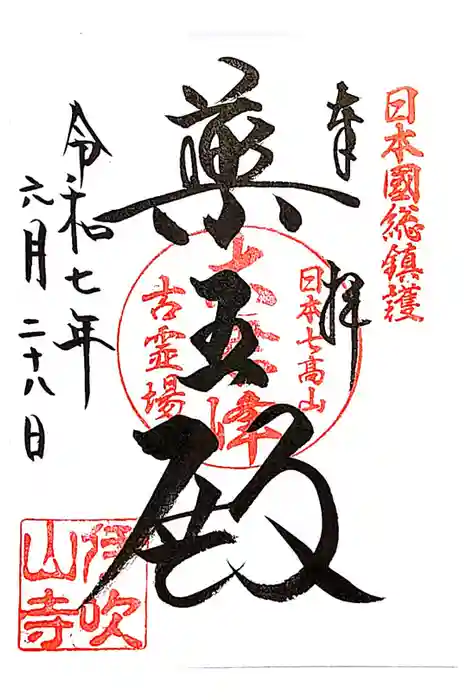 日本國総鎮護
奉拝
日本七高山
大乗峰
古霊場
薬王殿
令和七年
六月二十八日
伊吹
山寺